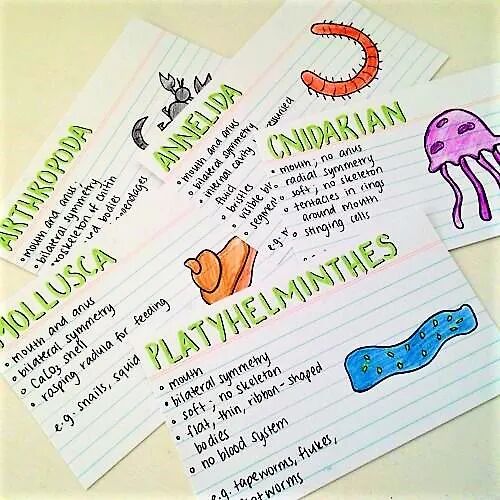 ARTHROPODA
• mouth and anus
• bilateral symmetry
exoskeleton of chitin
ed bodies
appendages
ANNELIDA
• mouth and anus
• bilateral symmetry
internal cavity
fluid
• bristles
visible
segmen
CNIDARIAN
• mouth, no anus
• radial symmetry
• soft, no skeleton
• tentacles in rings
around mouth
• stinging cells
e.g.
MOLLUSCA
• mouth and anus
• bilateral symmetry
• CaCO3 shell
• rasping radula for feeding
e.g. snails, squid
PLATYHELMINTHES
• mouth
• bilateral symmetry
• soft, no skeleton
• flat, thin, ribbon-shaped
bodies
• no blood system
e.g. tapeworms, flukes,
worms